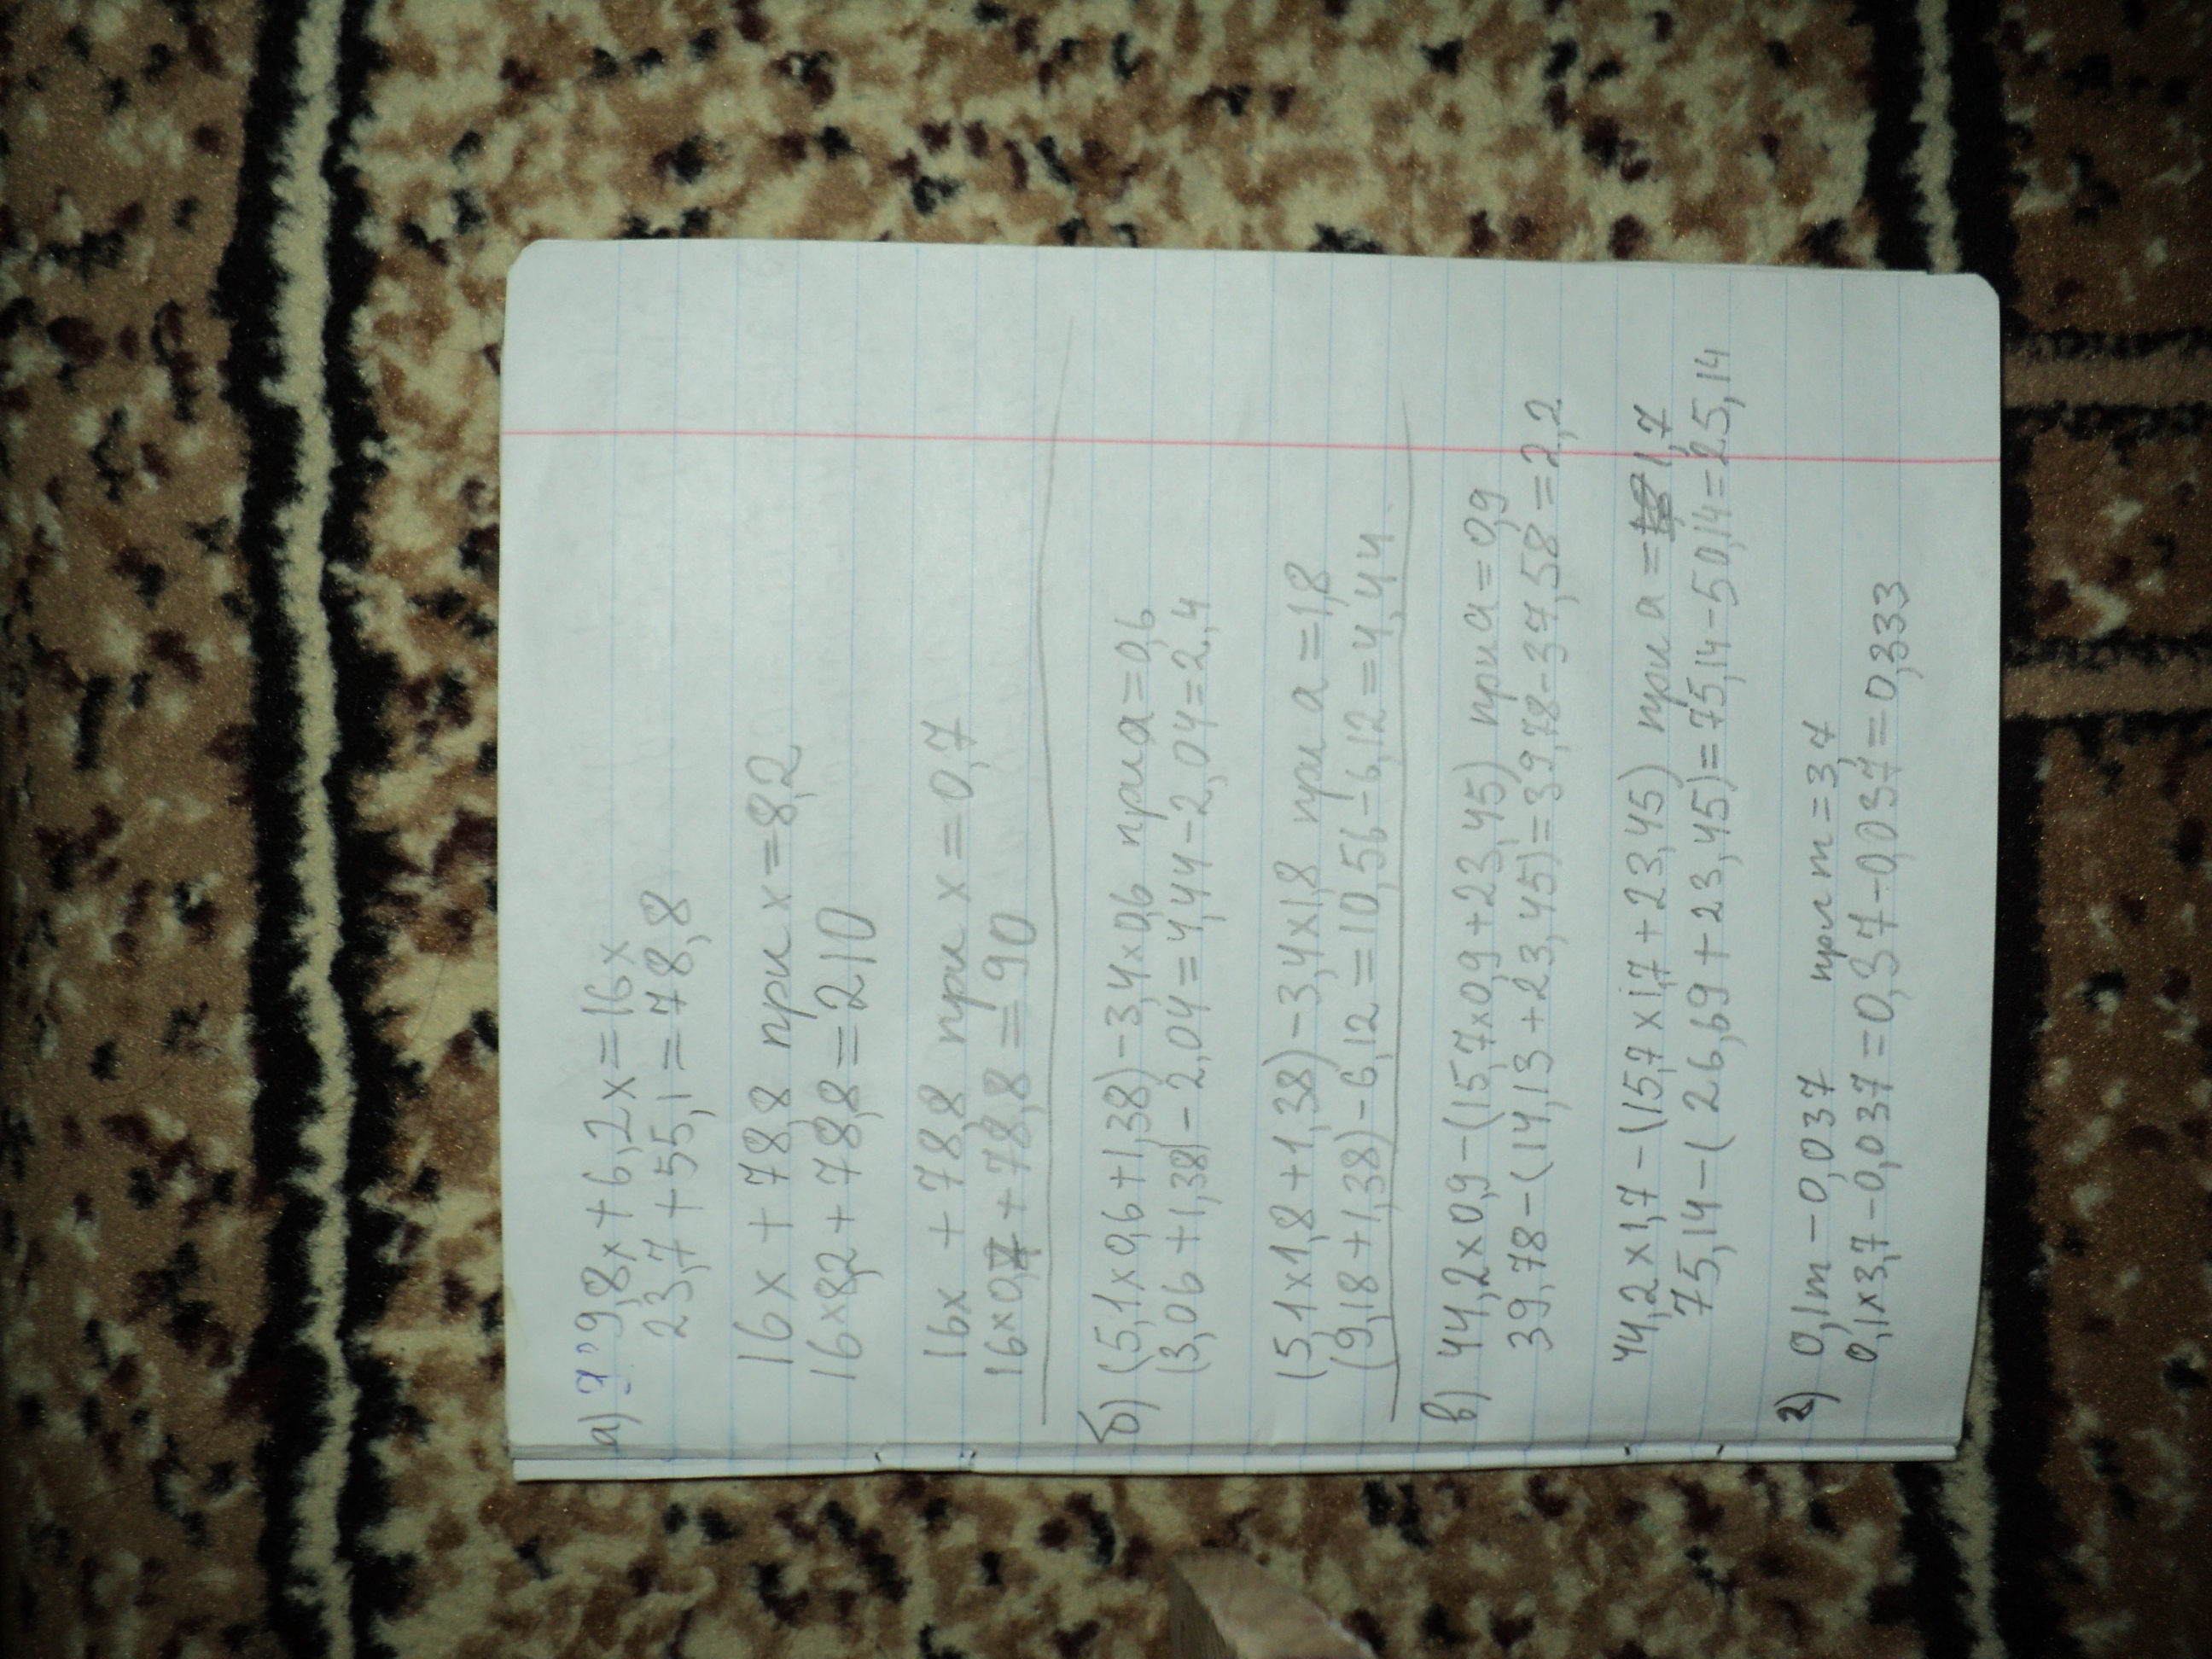 а) 9,8x + 6,2x = 16x
23,7 + 55,1 = 78,8
16x + 78,8 при x = 8,2
16 x 8,2 + 78,8 = 210
16x + 78,8 при x = 0,7
16 x 0,7 + 78,8 = 90
б) (5,1 x 0,6 + 1,38) - 3,4 x 0,6 при a = 0,6
(3,06 + 1,38) - 2,04 = 4,44 - 2,04 = 2,4
(5,1 x 1,8 + 1,38) - 3,4 x 1,8 при a = 1,8
(9,18 + 1,38) - 6,12 = 10,56 - 6,12 = 4,44
в) 44,2 x 0,9 - (15,7 x 0,9 + 23,45) при a = 0,9
39,78 - (14,13 + 23,45) = 39,78 - 37,58 = 2,2
44,2 x 1,7 - (15,7 x 1,7 + 23,45) при a = 1,7
75,14 - (26,69 + 23,45) = 75,14 - 50,14 = 25,14
г) 0,1m - 0,037 при m = 3,7
0,1 x 3,7 - 0,037 = 0,37 - 0,037 = 0,333